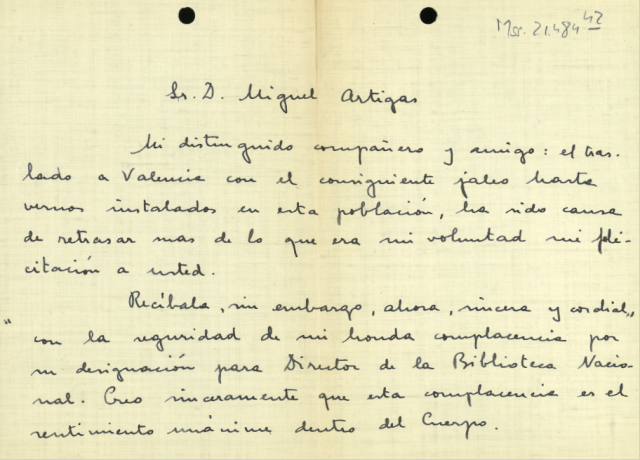 Mss. 21.484 42
Sr. D. Miguel Artigas
Mi distinguido compañero y amigo: el tras-
lado a Valencia con el consiguiente jaleo hasta
vernos instalados en esta población, ha sido causa
de retrasar mas de lo que era mi voluntad mi feli-
citación a usted.
Recíbala, sin embargo, ahora, sincera y cordial,,
" con la seguridad de mi honda complacencia por
su designación para Director de la Biblioteca Nacio-
nal. Creo sinceramente que esta complacencia es el
sentimiento unánime dentro del Cuerpo.